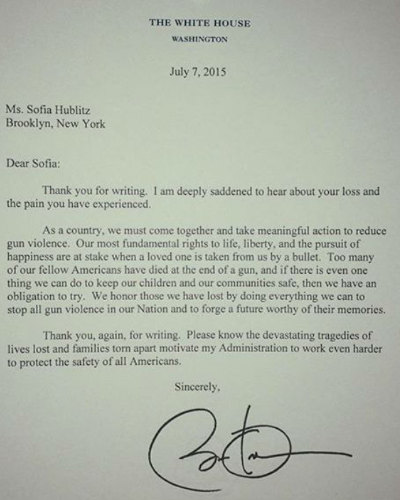 THE WHITE HOUSE
WASHINGTON
July 7, 2015
Ms. Sofia Hublitz
Brooklyn, New York
Dear Sofia:
Thank you for writing. I am deeply saddened to hear about your loss and
the pain you have experienced.
As a country, we must come together and take meaningful action to reduce
gun violence. Our most fundamental rights to life, liberty, and the pursuit of
happiness are at stake when a loved one is taken from us by a bullet. Too many
of our fellow Americans have died at the end of a gun, and if there is even one
thing we can do to keep our children and our communities safe, then we have an
obligation to try. We honor those we have lost by doing everything we can to
stop all gun violence in our Nation and to forge a future worthy of their memories.
Thank you, again, for writing. Please know the devastating tragedies of
lives lost and families torn apart motivate my Administration to work even harder
to protect the safety of all Americans.
Sincerely,